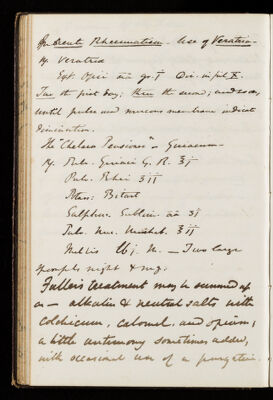 In Acute Rheumatism - Use of Veratria -
℞ Veratria
Ext. Opii aa gr. T Div. in pil X.
Two the first day; three the second; and so on,
until pulse and mucous membrane indicate
diminution.
The "Chelsea Pensioner" - Guiacum -
℞ Pulv. Guiaci G. R. ʒi
Pulv. Rhei ʒii
Potass: Bitart
Sulphur. Sublim. aa ℥i
Pulv. Nuc. Moschat. ʒii
Mellis lbj. M. - Two large
spoonfuls night & mg.
Fuller's treatment may be summed up
as - alkalis & neutral salts with
colchicum, calomel, and opium;
a little antimony sometimes added,
with occasional use of a purgative.